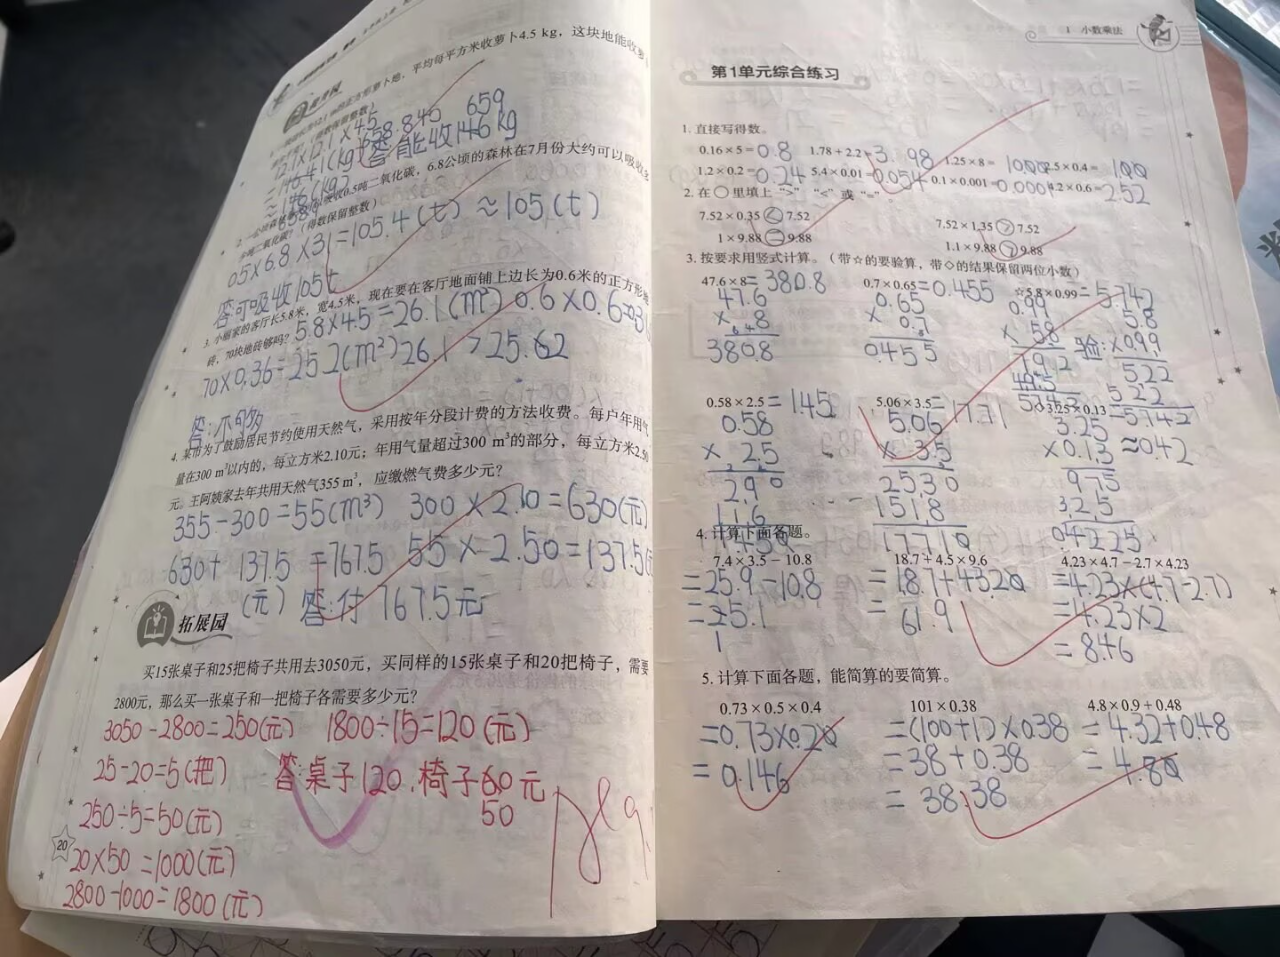 平均每平方米收萝卜4.5 kg，这块地能收萝
659
答能收146kg
6.8公顷的森林在7月份大约可以吸收多
（得数保留整数）
0.5×6.8×31=105.4(t)≈105(t)
答可吸收105t
3. 小丽家的客厅长5.8米，宽4.5米，现在要在客厅地面铺上边长为0.6米的正方形地
砖，70块地砖够吗？
5.8×4.5=26.1(m²) 0.6×0.6=0.36
70×0.36=25.2(m²) 26.1>25.62
答：不够
4. 某市为了鼓励居民节约使用天然气，采用按年分段计费的方法收费。每户年用气
量在300 m³以内的，每立方米2.10元；年用气量超过300 m³的部分，每立方米2.50
元。王阿姨家去年共用天然气355 m³，应缴燃气费多少元？
355-300=55(m³) 300×2.10=630(元)
630+137.5=767.5 55×2.50=137.5(元
(元) 答:付767.5元
拓展园
买15张桌子和25把椅子共用去3050元，买同样的15张桌子和20把椅子，需要
2800元，那么买一张桌子和一把椅子各需要多少元？
3050-2800=250(元) 1800÷15=120(元)
25-20=5(把) 答桌子120.椅子60元
50
250÷5=50(元)
20×50=1000(元)
2800-1000=1800(元)
20
1 小数乘法
第1单元综合练习
1. 直接写得数。
0.16×5=0.8 1.78+2.2=3.98 1.25×8=10 2.5×0.4=1
1.2×0.2=0.24 5.4×0.01=0.054 0.1×0.001=0.0001 4.2×0.6=2.52
2. 在○里填上“>”“<”或“=”。
7.52×0.35<7.52 7.52×1.35>7.52
1×9.88=9.88 1.1×9.88>9.88
3. 按要求用竖式计算。（带☆的要验算，带◇的结果保留两位小数）
47.6×8=380.8 0.7×0.65=0.455 ☆5.8×0.99=5.742
47.6 0.65 0.99 5.8
×8 ×0.7 ×5.8 验:×0.99
380.8 0.455 792 522
495 522
5.742 5.742
0.58×2.5=1.45 5.06×3.5=17.71 ◇3.25×0.13
0.58 5.06 3.25 ≈0.42
×2.5 ×3.5 ×0.13
290 2530 975
116 1518 325
1.450 17.710 0.4225
4. 计算下面各题。
7.4×3.5-10.8 18.7+4.5×9.6 4.23×4.7-2.7×4.23
=25.9-10.8 =18.7+43.20 =4.23×(4.7-2.7)
=15.1 =61.9 =4.23×2
=8.46
5. 计算下面各题，能简算的要简算。
0.73×0.5×0.4 101×0.38 4.8×0.9+0.48
=0.73×0.20 =(100+1)×0.38 =4.32+0.48
=0.146 =38+0.38 =4.80
=38.38